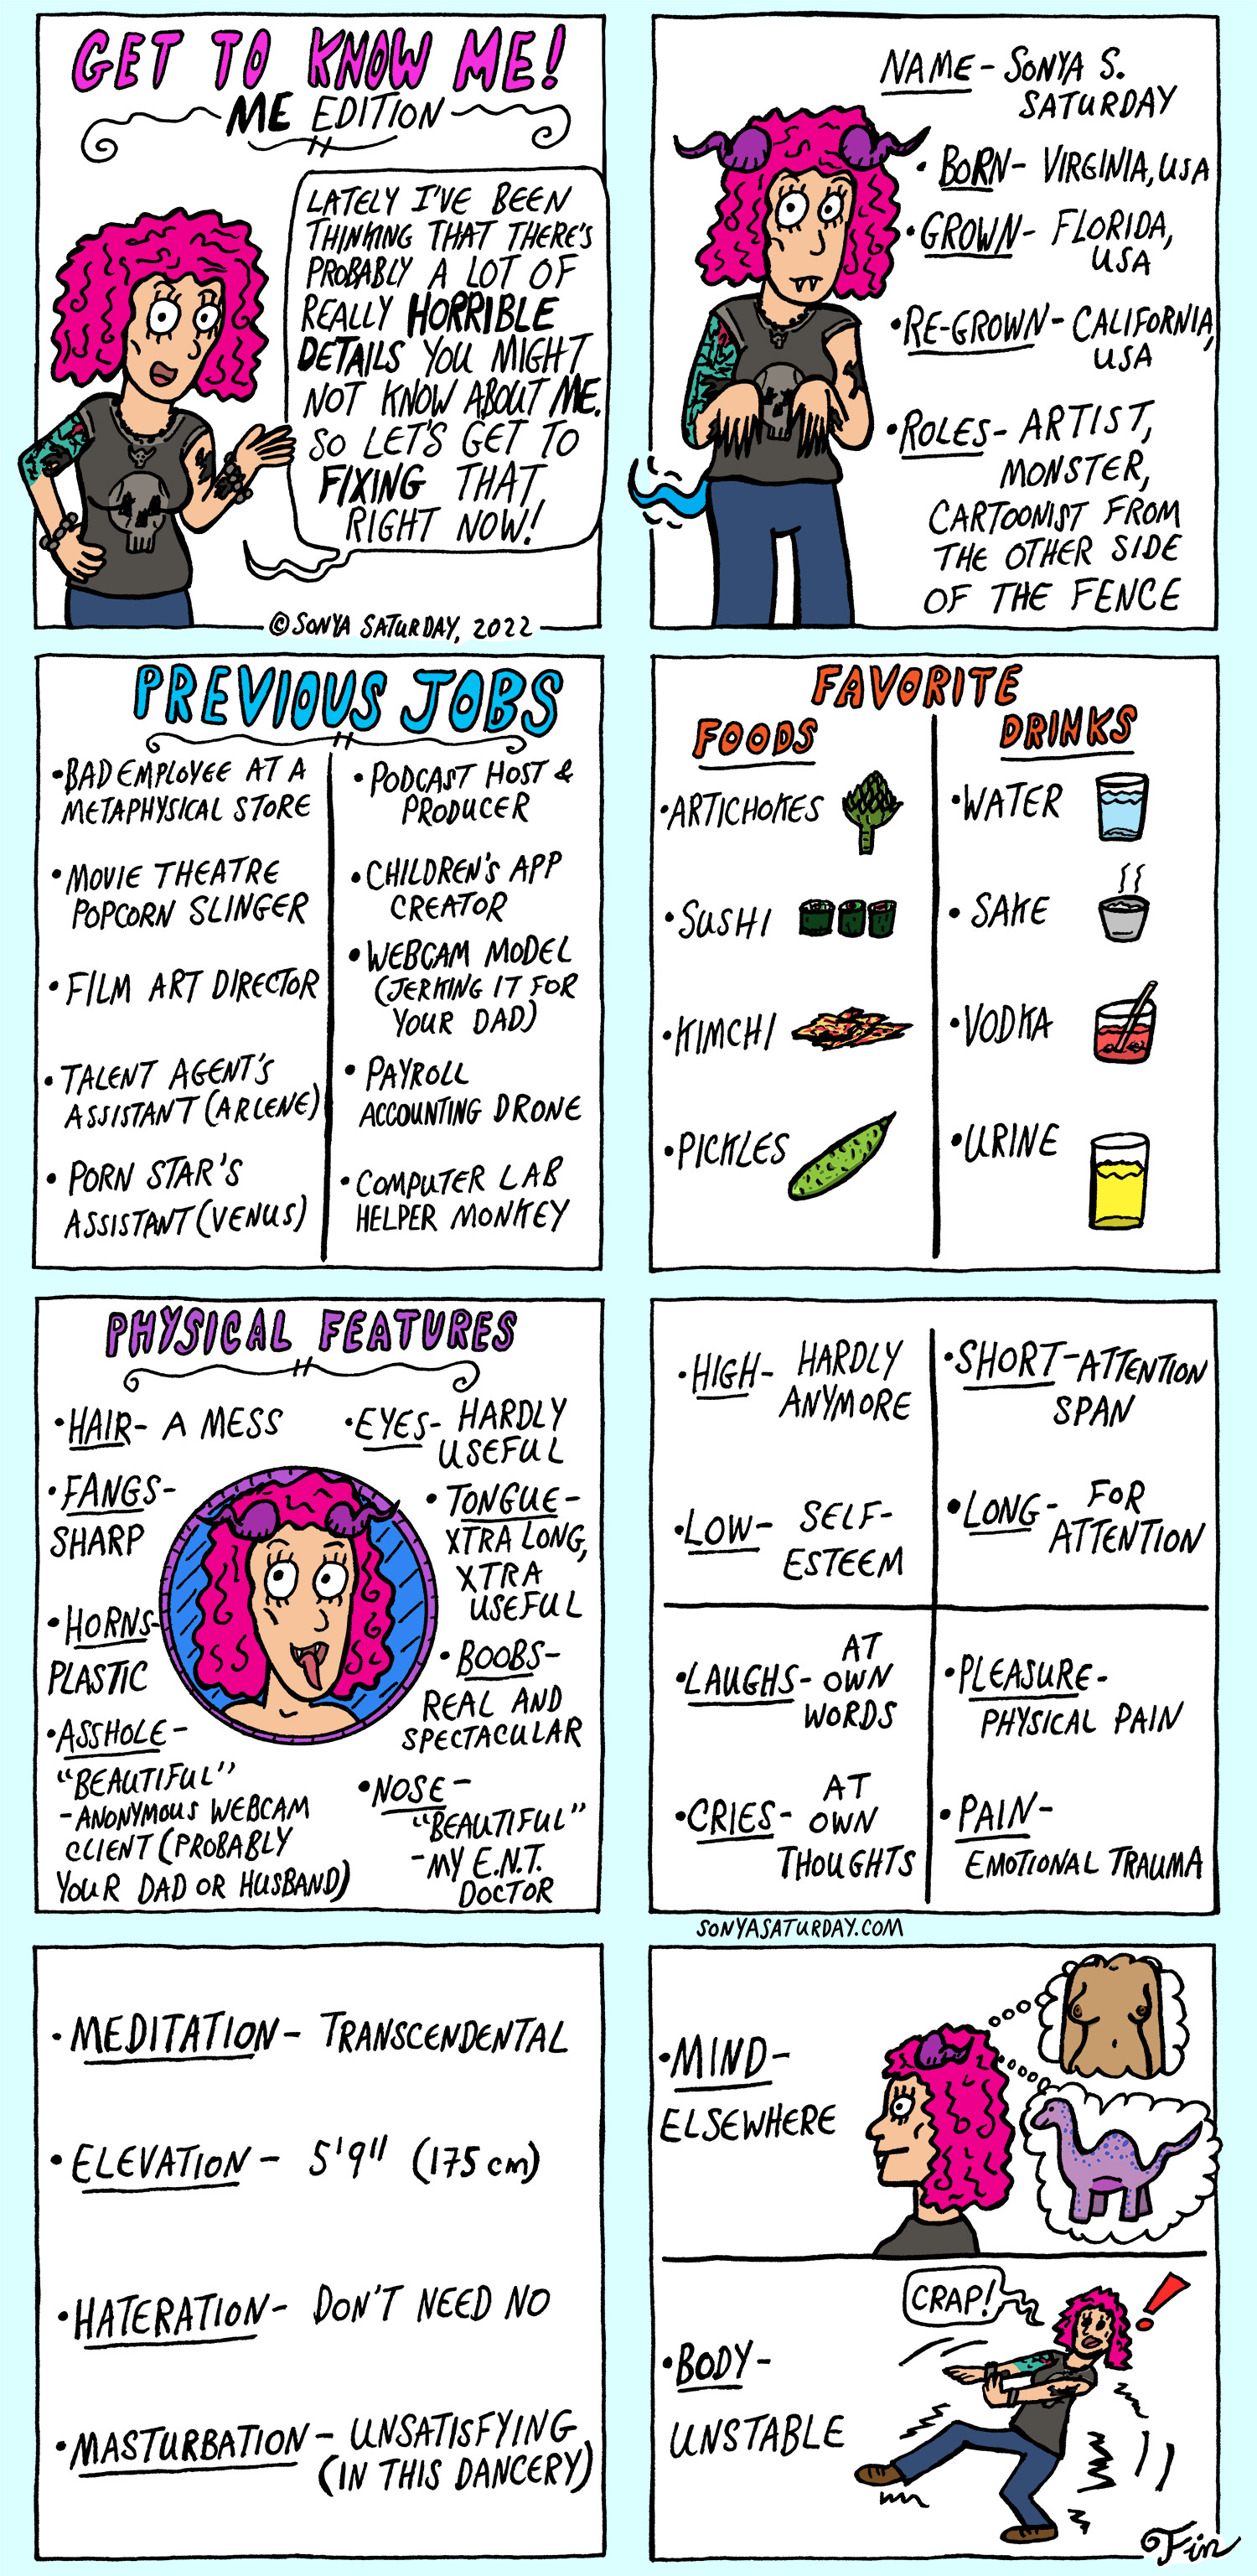 GET TO KNOW ME!
ME EDITION
LATELY I'VE BEEN
THINKING THAT THERE'S
PROBABLY A LOT OF
REALLY HORRIBLE
DETAILS YOU MIGHT
NOT KNOW ABOUT ME.
SO LET'S GET TO
FIXING THAT,
RIGHT NOW!
© SONYA SATURDAY, 2022
NAME - SONYA S.
SATURDAY
• BORN - VIRGINIA, USA
• GROWN - FLORIDA,
USA
• RE-GROWN - CALIFORNIA,
USA
• ROLES - ARTIST,
MONSTER,
CARTOONIST FROM
THE OTHER SIDE
OF THE FENCE
PREVIOUS JOBS
• BAD EMPLOYEE AT A
METAPHYSICAL STORE
• MOVIE THEATRE
POPCORN SLINGER
• FILM ART DIRECTOR
• TALENT AGENT'S
ASSISTANT (ARLENE)
• PORN STAR'S
ASSISTANT (VENUS)
• PODCAST HOST &
PRODUCER
• CHILDREN'S APP
CREATOR
• WEBCAM MODEL
(JERKING IT FOR
YOUR DAD)
• PAYROLL
ACCOUNTING DRONE
• COMPUTER LAB
HELPER MONKEY
FAVORITE
FOODS
• ARTICHOKES
• SUSHI
• KIMCHI
• PICKLES
DRINKS
• WATER
• SAKE
• VODKA
• URINE
PHYSICAL FEATURES
• HAIR - A MESS
• FANGS -
SHARP
• HORNS -
PLASTIC
• ASSHOLE -
"BEAUTIFUL"
- ANONYMOUS WEBCAM
CLIENT (PROBABLY
YOUR DAD OR HUSBAND)
• EYES - HARDLY
USEFUL
• TONGUE -
XTRA LONG,
XTRA
USEFUL
• BOOBS -
REAL AND
SPECTACULAR
• NOSE -
"BEAUTIFUL"
- MY E.N.T.
DOCTOR
• HIGH - HARDLY
ANYMORE
• LOW - SELF-
ESTEEM
• SHORT - ATTENTION
SPAN
• LONG - FOR
ATTENTION
• LAUGHS - AT
OWN
WORDS
• CRIES - AT
OWN
THOUGHTS
• PLEASURE -
PHYSICAL PAIN
• PAIN -
EMOTIONAL TRAUMA
SONYASATURDAY.COM
• MEDITATION - TRANSCENDENTAL
• ELEVATION - 5'9" (175 cm)
• HATERATION - DON'T NEED NO
• MASTURBATION - UNSATISFYING
(IN THIS DANCERY)
• MIND -
ELSEWHERE
CRAP!
!
• BODY -
UNSTABLE
Fin